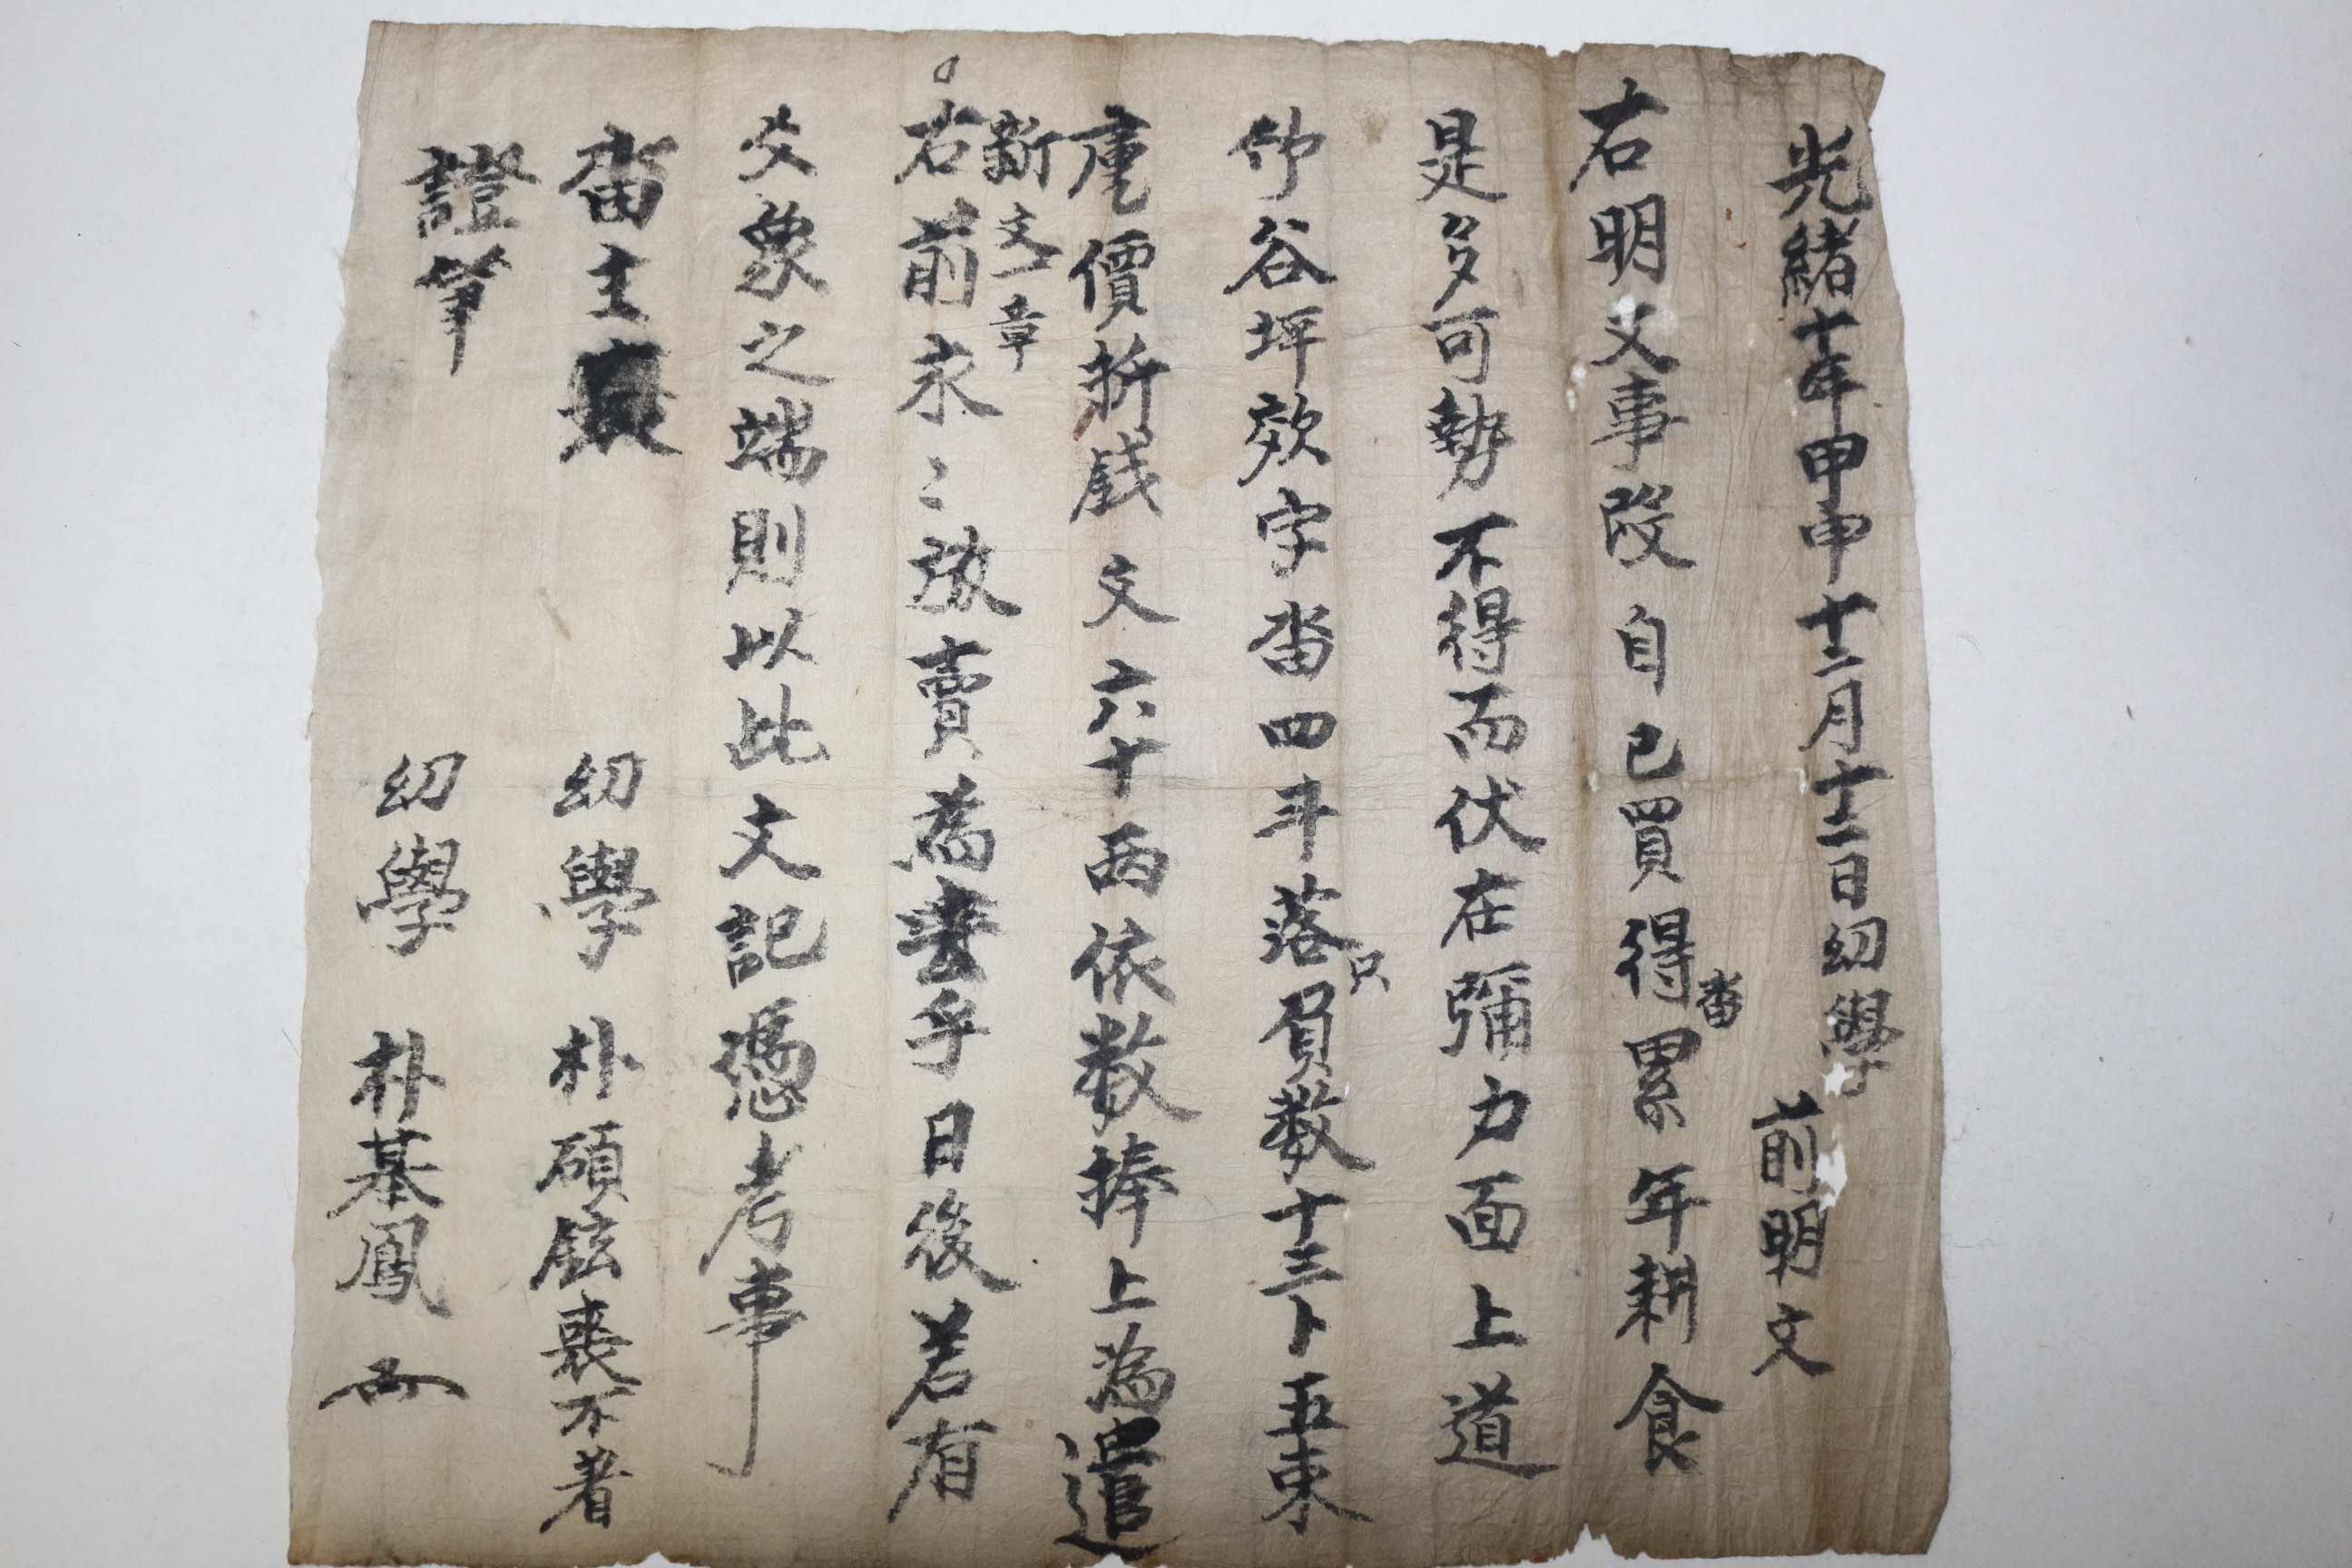 光緖十年甲申十二月十二日幼學 前明文
右明文事段自己買得畓累年耕食
是多可勢不得而伏在彌力面上道
仰谷坪效字畓四斗落只負數十三卜五束
庫價折錢文六十兩依數捧上爲遣
新文一章
右前永〻放賣爲去乎日後若有
爻象之端則以此文記憑考事
畓主喪 幼學 朴碩鉉喪不着
證筆 幼學 朴基鳳